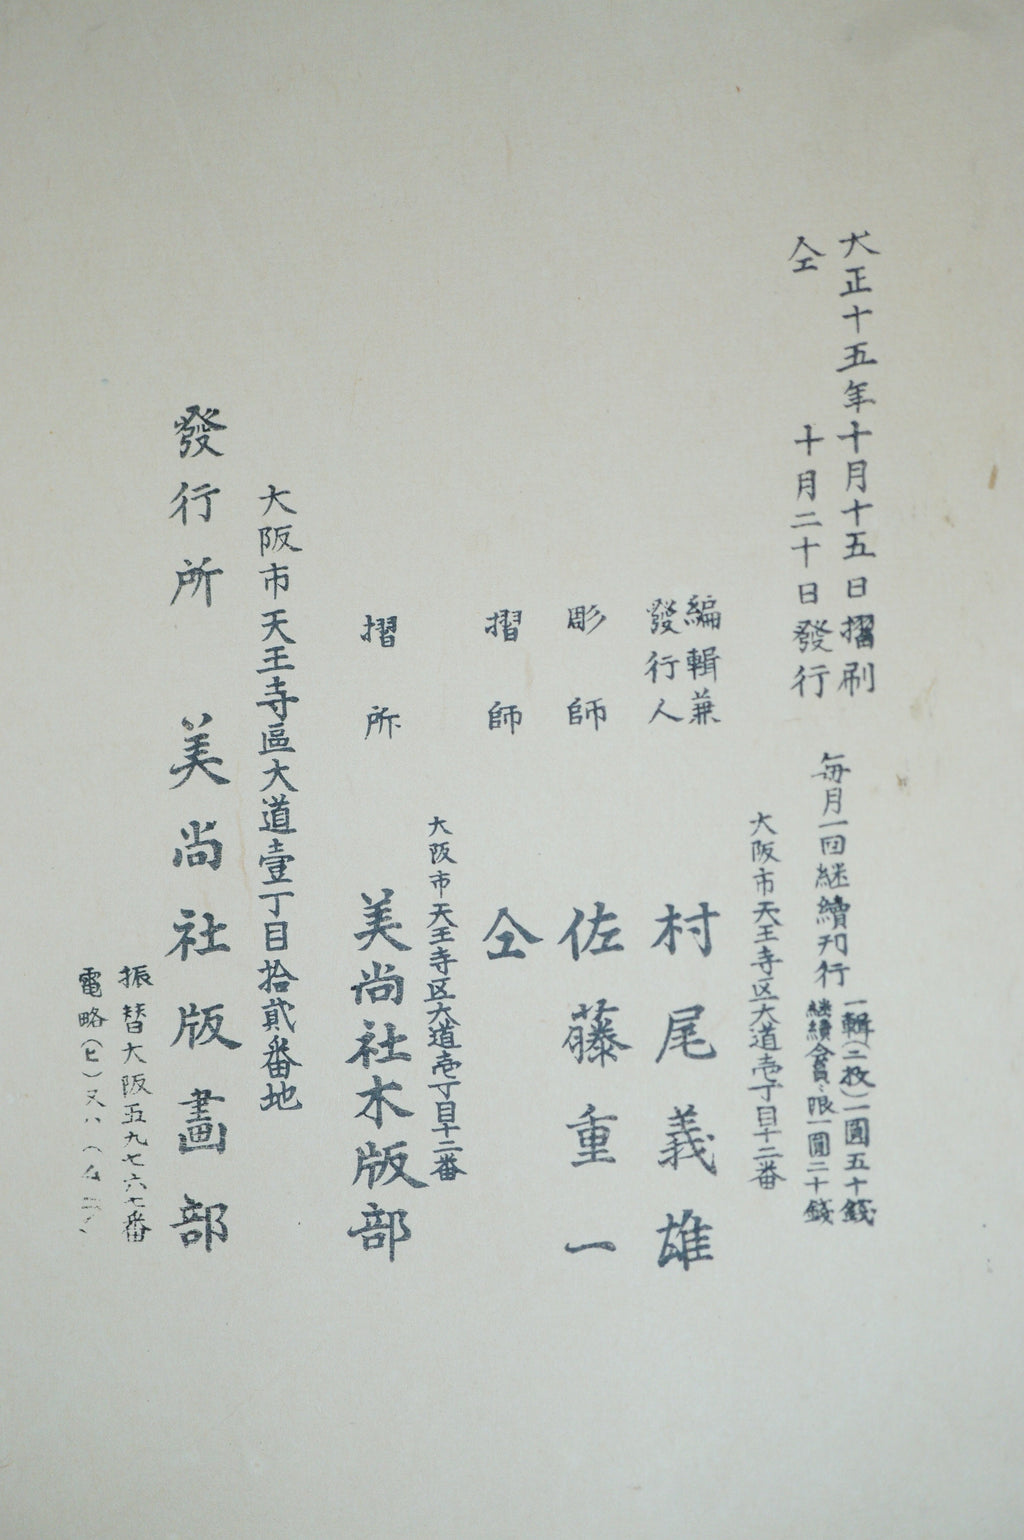 大正十五年十月十五日摺刷
仝　十月二十日發行
毎月一回継續刊行
一輯(二枚)一圓五十錢
継續会員ニ限一圓二十錢
大阪市天王寺区大道壱丁目十二番
編輯兼
發行人　村尾義雄
彫師　佐藤重一
摺師　仝
大阪市天王寺区大道壱丁目十二番
摺所　美尚社木版部
大阪市天王寺區大道壹丁目拾貳番地
發行所　美尚社版畫部
振替大阪五九七六七番
電略(ヒ)又ハ